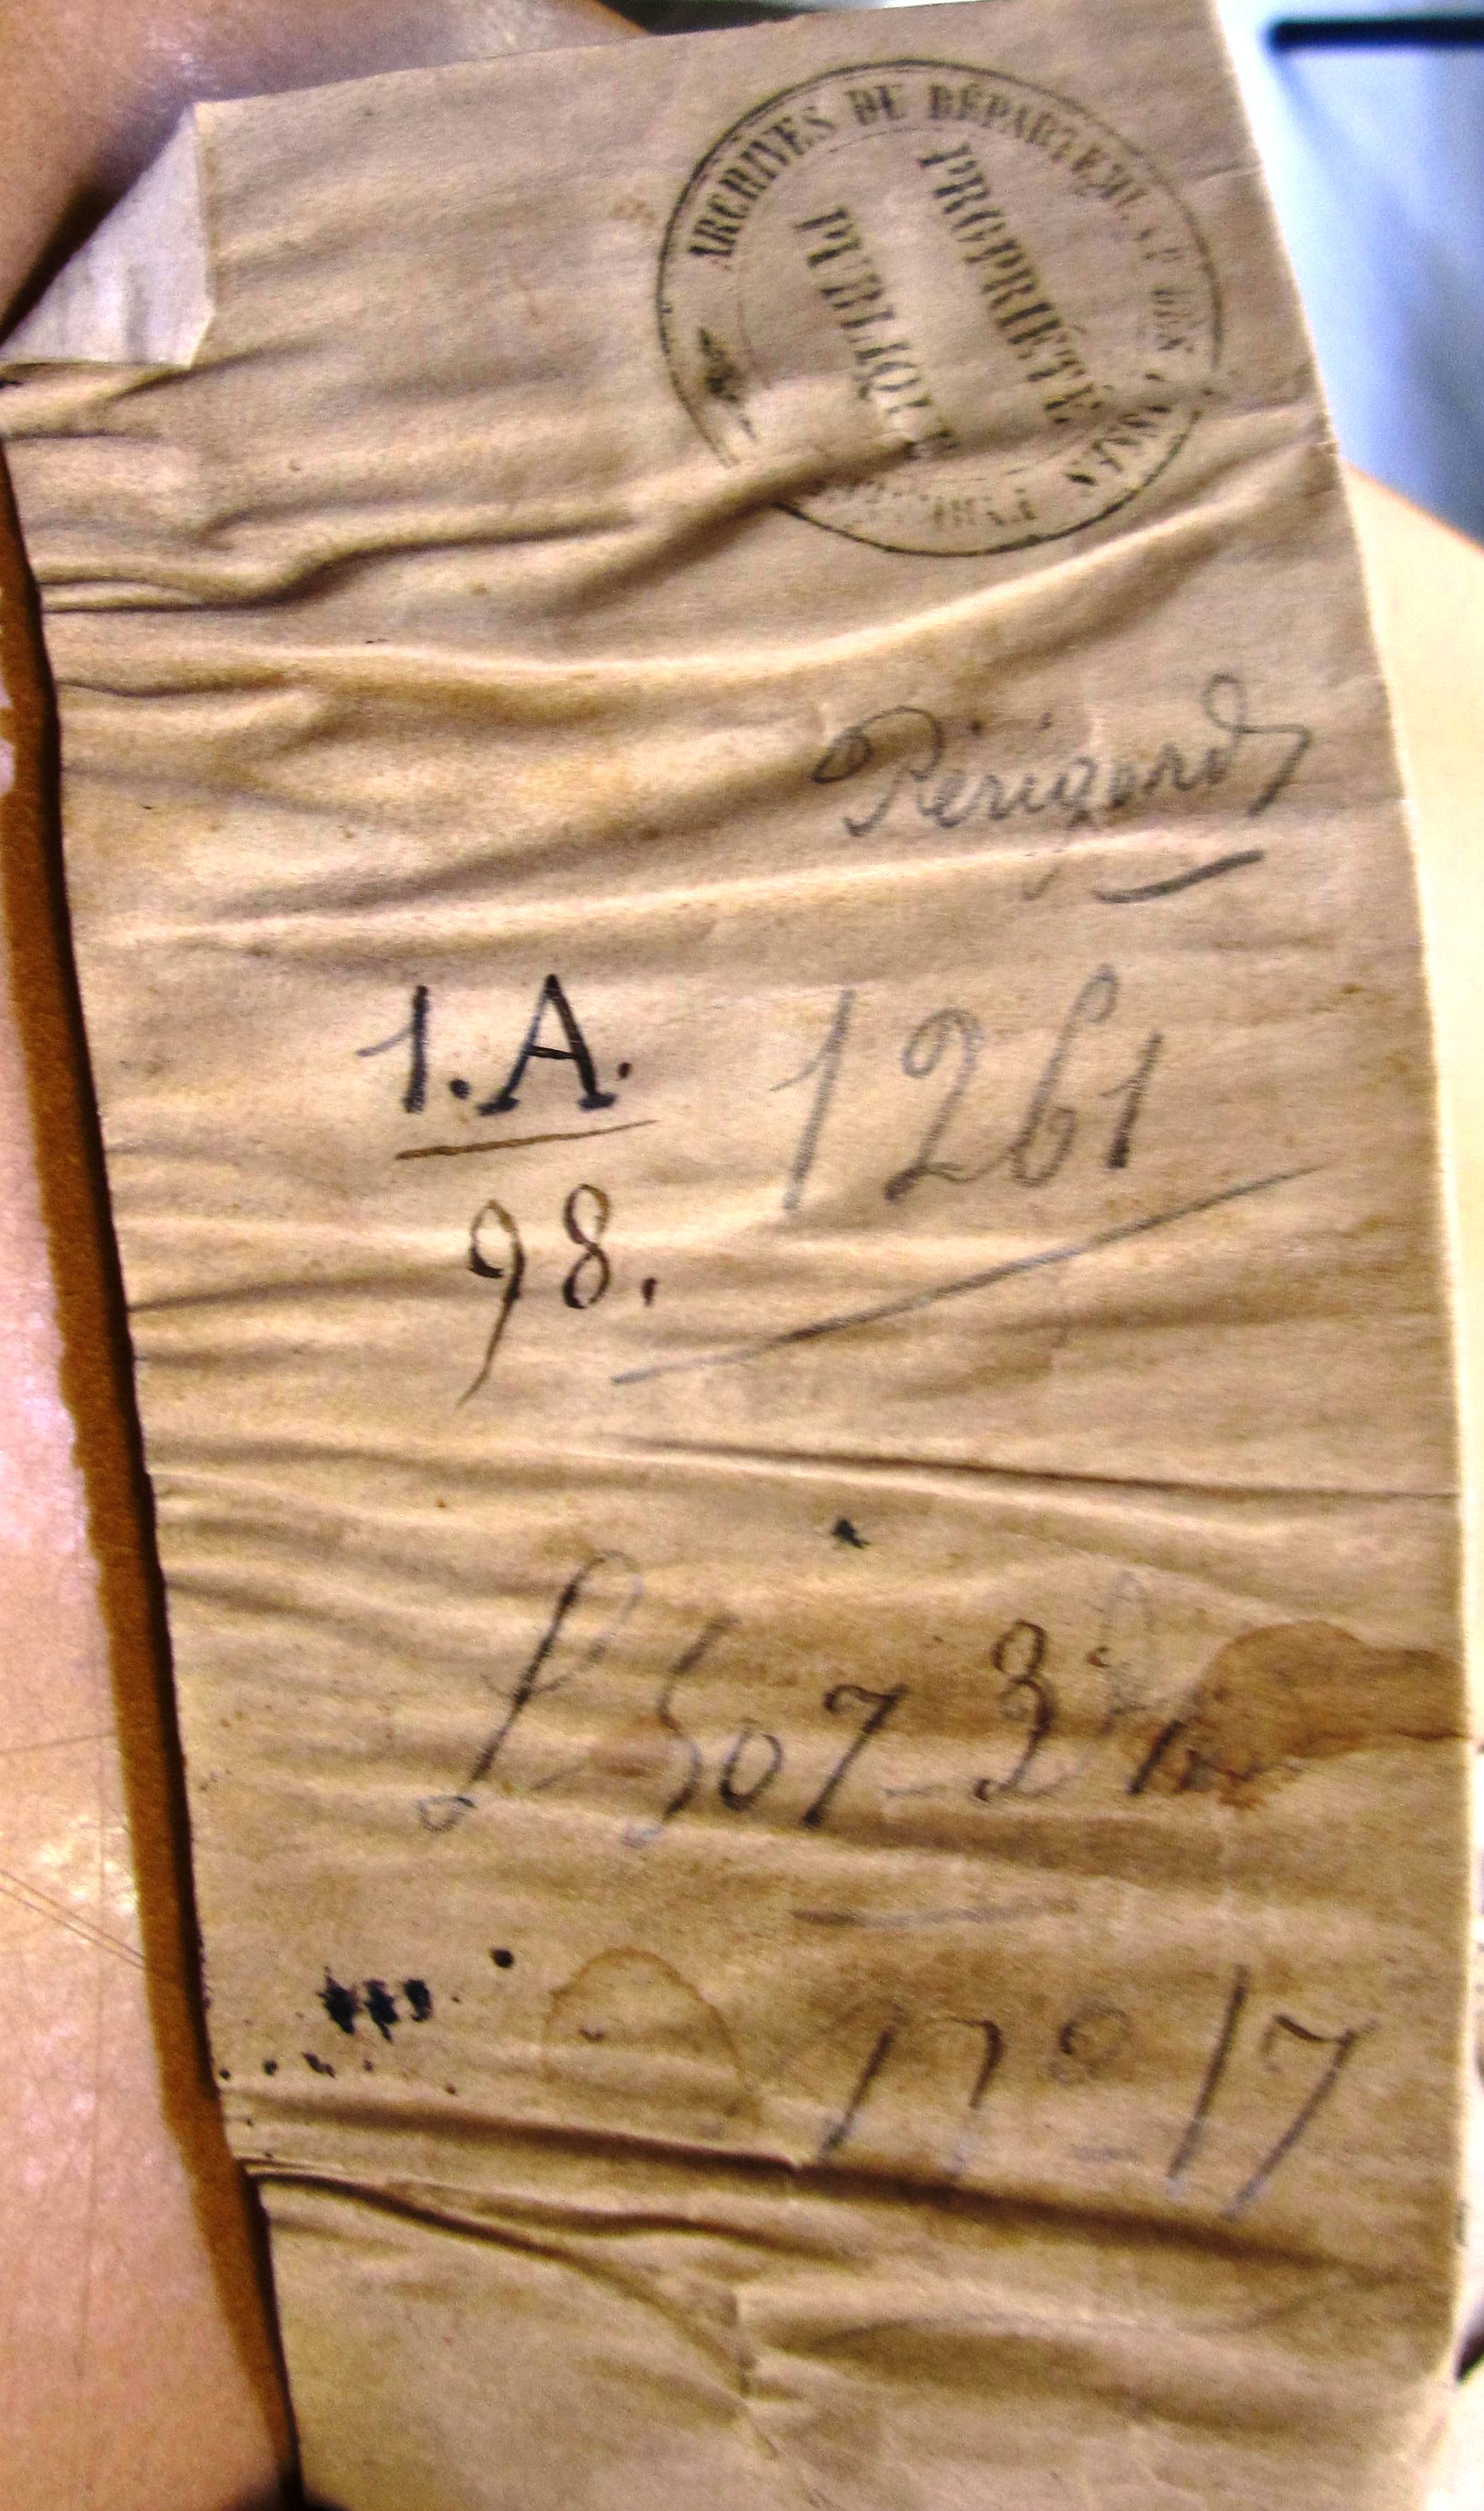 ARCHIVES DU DÉPARTEMENT DES
PROPRIÉTÉ
PUBLIQUE
Périgord
1.A. 1261
98.
507 _ 3
n° 17